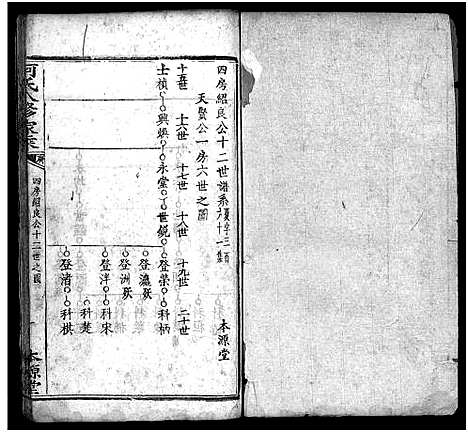 四房紹良公十二世譜系
天賢公一房六世之圖
本源堂
十五世 十六世 十七世 十八世 十九世 二十世
士禎 興煥 永堂 世銳 登榮 科柄
登瀛 殀
登洲 殀
登洋 科宋
科楚
登渚 科棋
何氏八修家乘
四房紹良公十二世之圖
本源堂